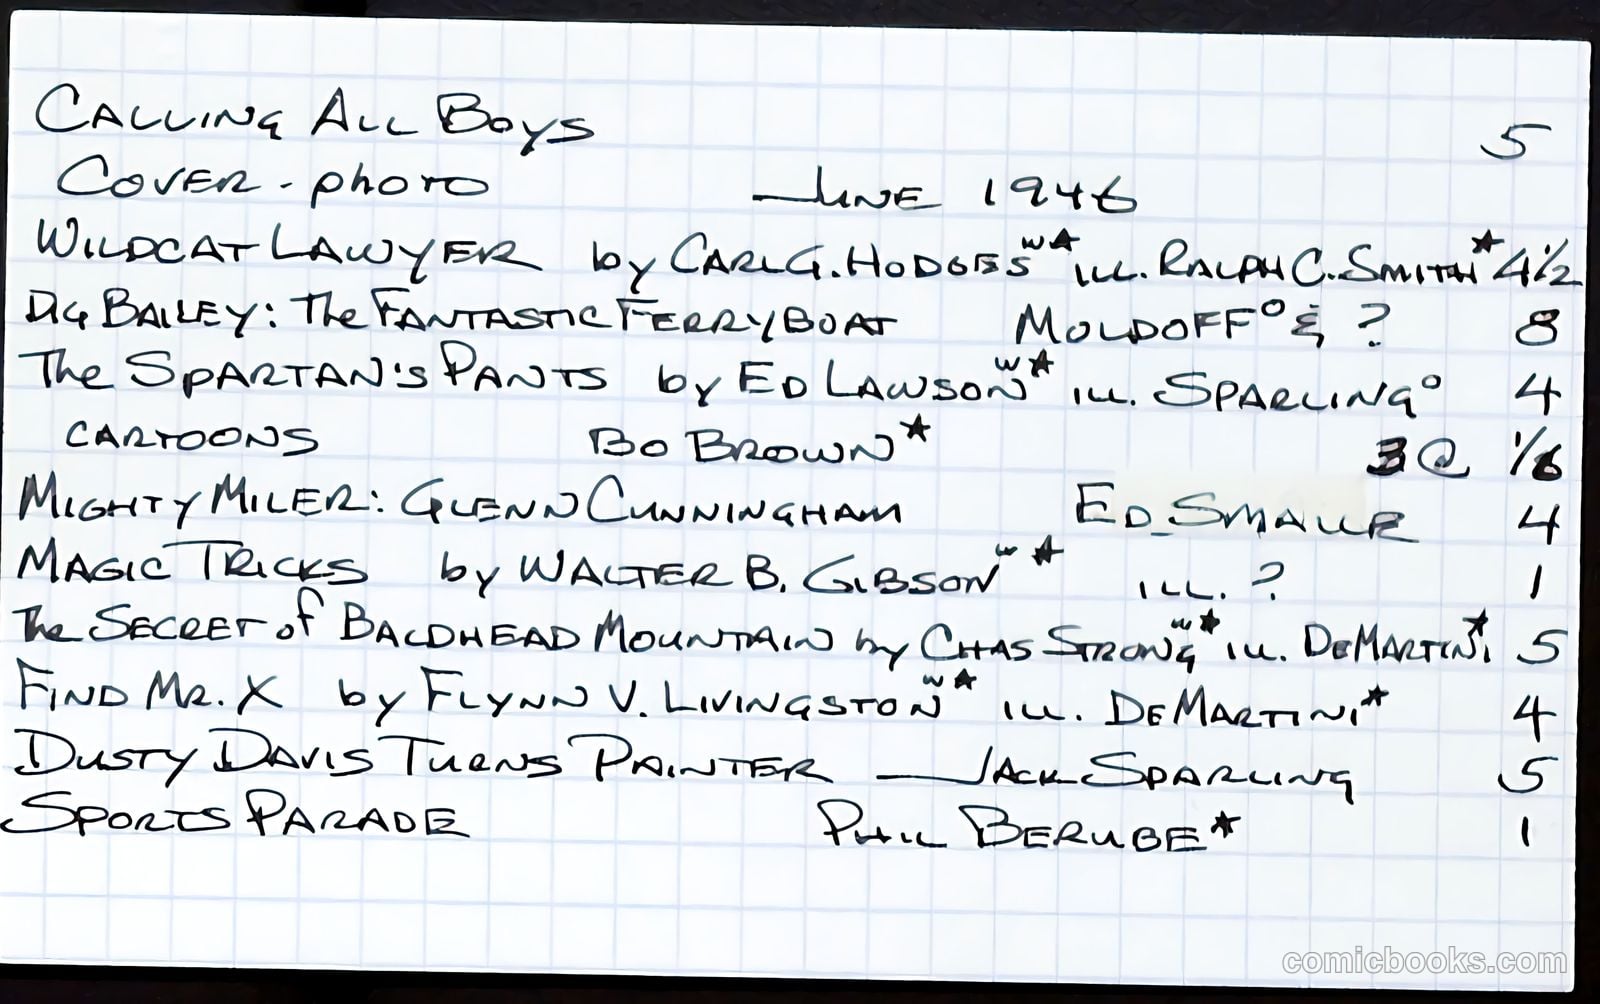 Calling All Boys 5
Cover - photo June 1946
Wildcat Lawyer by Carl G. Hodges w★ ill. Ralph C. Smith★ 4 1/2
Dig Bailey: The Fantastic Ferryboat Moldoff° & ? 8
The Spartan's Pants by Ed Lawson w★ ill. Sparling° 4
cartoons Bo Brown★ 3 @ 1/6
Mighty Miler: Glenn Cunningham Ed Smalle 4
Magic Tricks by Walter B. Gibson w★ ill. ? 1
The Secret of Baldhead Mountain by Chas Strong w★ ill. DeMartini★ 5
Find Mr. X by Flynn V. Livingston w★ ill. DeMartini★ 4
Dusty Davis Turns Painter Jack Sparling 5
Sports Parade Phil Berube★ 1
comicbooks.com